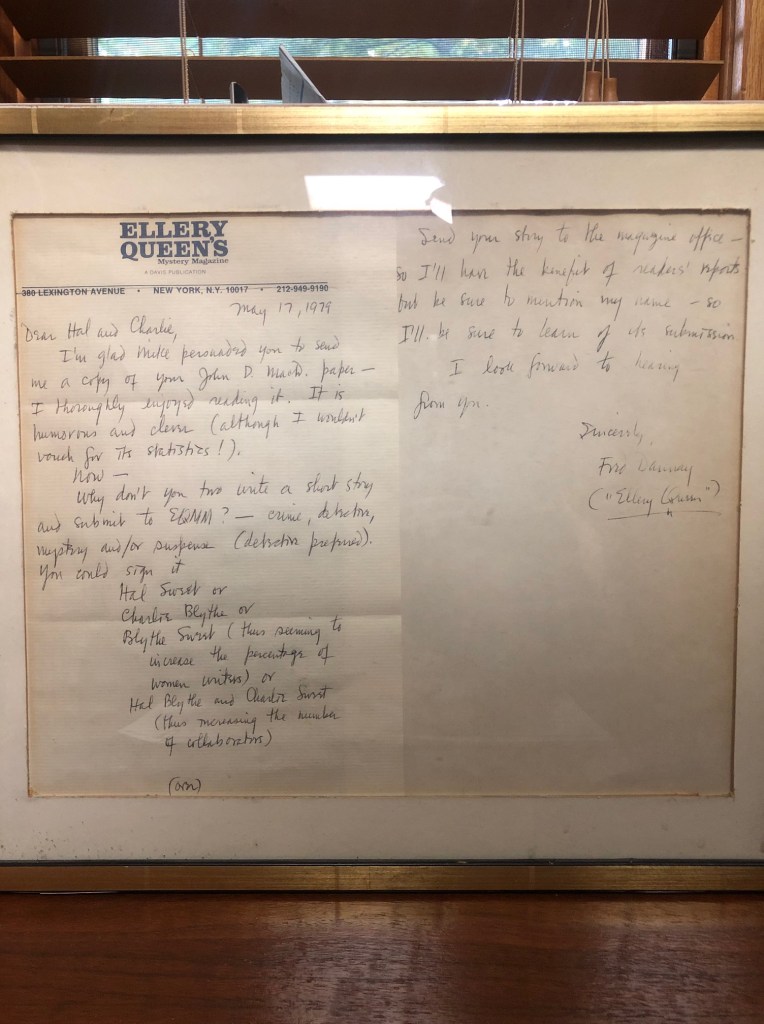 ELLERY
QUEEN'S
Mystery Magazine
A DAVIS PUBLICATION
380 LEXINGTON AVENUE • NEW YORK, N.Y. 10017 • 212-949-9190
May 17, 1979
Dear Hal and Charlie,
I'm glad Mike persuaded you to send
me a copy of your John D. MacD. paper —
I thoroughly enjoyed reading it. It is
humorous and clever (although I wouldn't
vouch for its statistics!).
Now —
Why don't you two write a short story
and submit to EQMM? — crime, detective,
mystery and/or suspense (detective preferred).
You could sign it
Hal Sweet or
Charlie Blythe or
Blythe Sweet (thus seeming to
increase the percentage of
women writers) or
Hal Blythe and Charlie Sweet
(thus increasing the number
of collaborators)
(over)
Send your story to the magazine office —
so I'll have the benefit of readers' reports
but be sure to mention my name — so
I'll be sure to learn of its submission
I look forward to hearing
from you.
Sincerely,
Fred Dannay
("Ellery Queen")